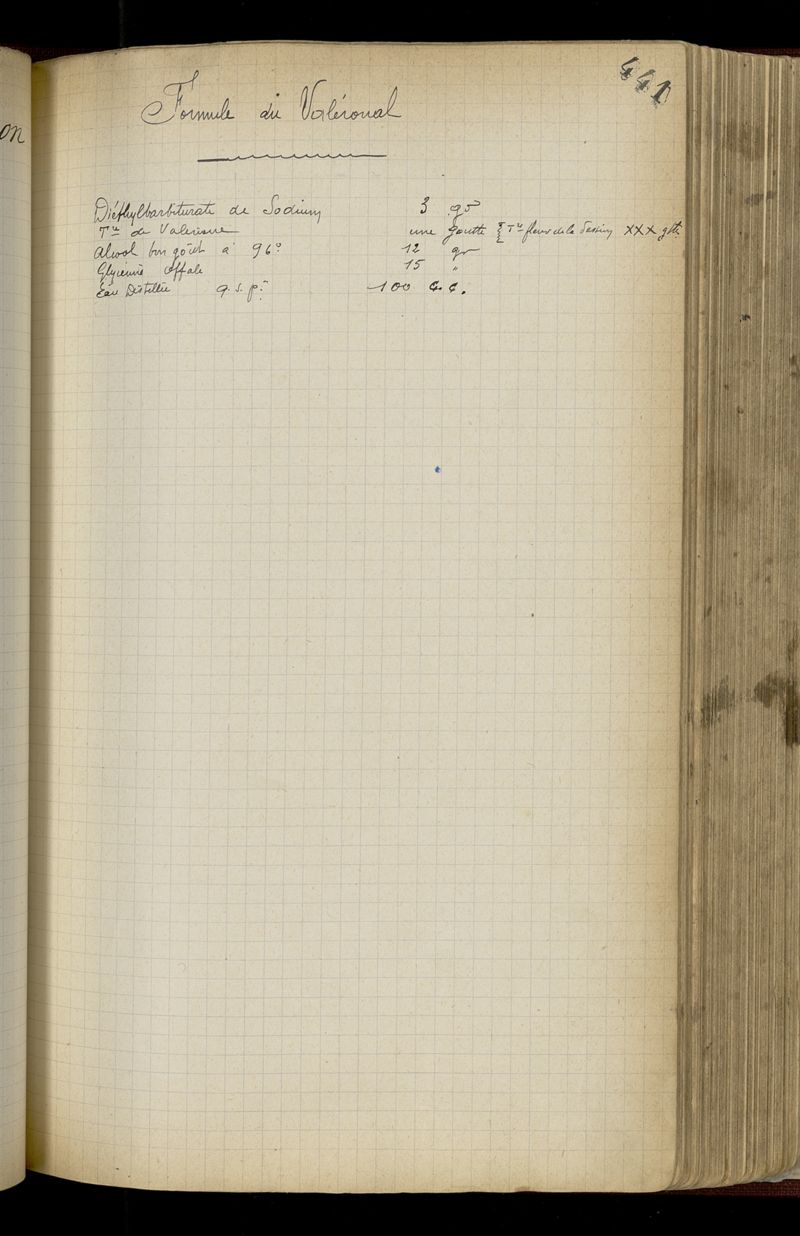 441
on
Formule du Valéronal
Diéthylbarbiturate de Sodium 3 gr
Tre de Valériane une goutte { Tre fleur de la Passion XXX gtt
Alcool bon goût à 96° 12 gr
Glycérine offale 15 "
Eau Distillée q.s.p. 100 c.c.